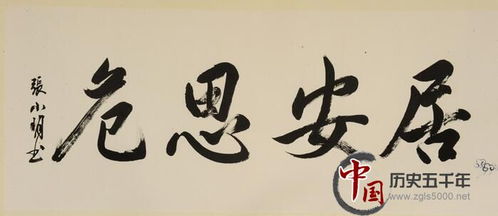 居安思危
張小明书
中国
历史五千年
www.zgls5000.net